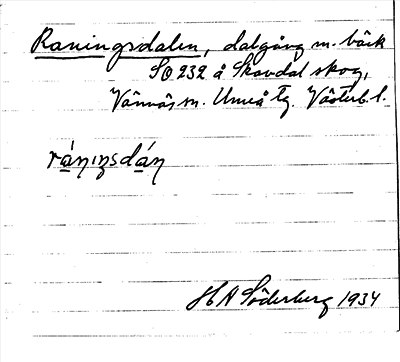 Raningsdalen, dalgång m. bäck
SO 232 å Skavdal skog,
Vännäs sn. Umeå Tg. Västerb. l.
ráningsdán
H A Söderberg 1934